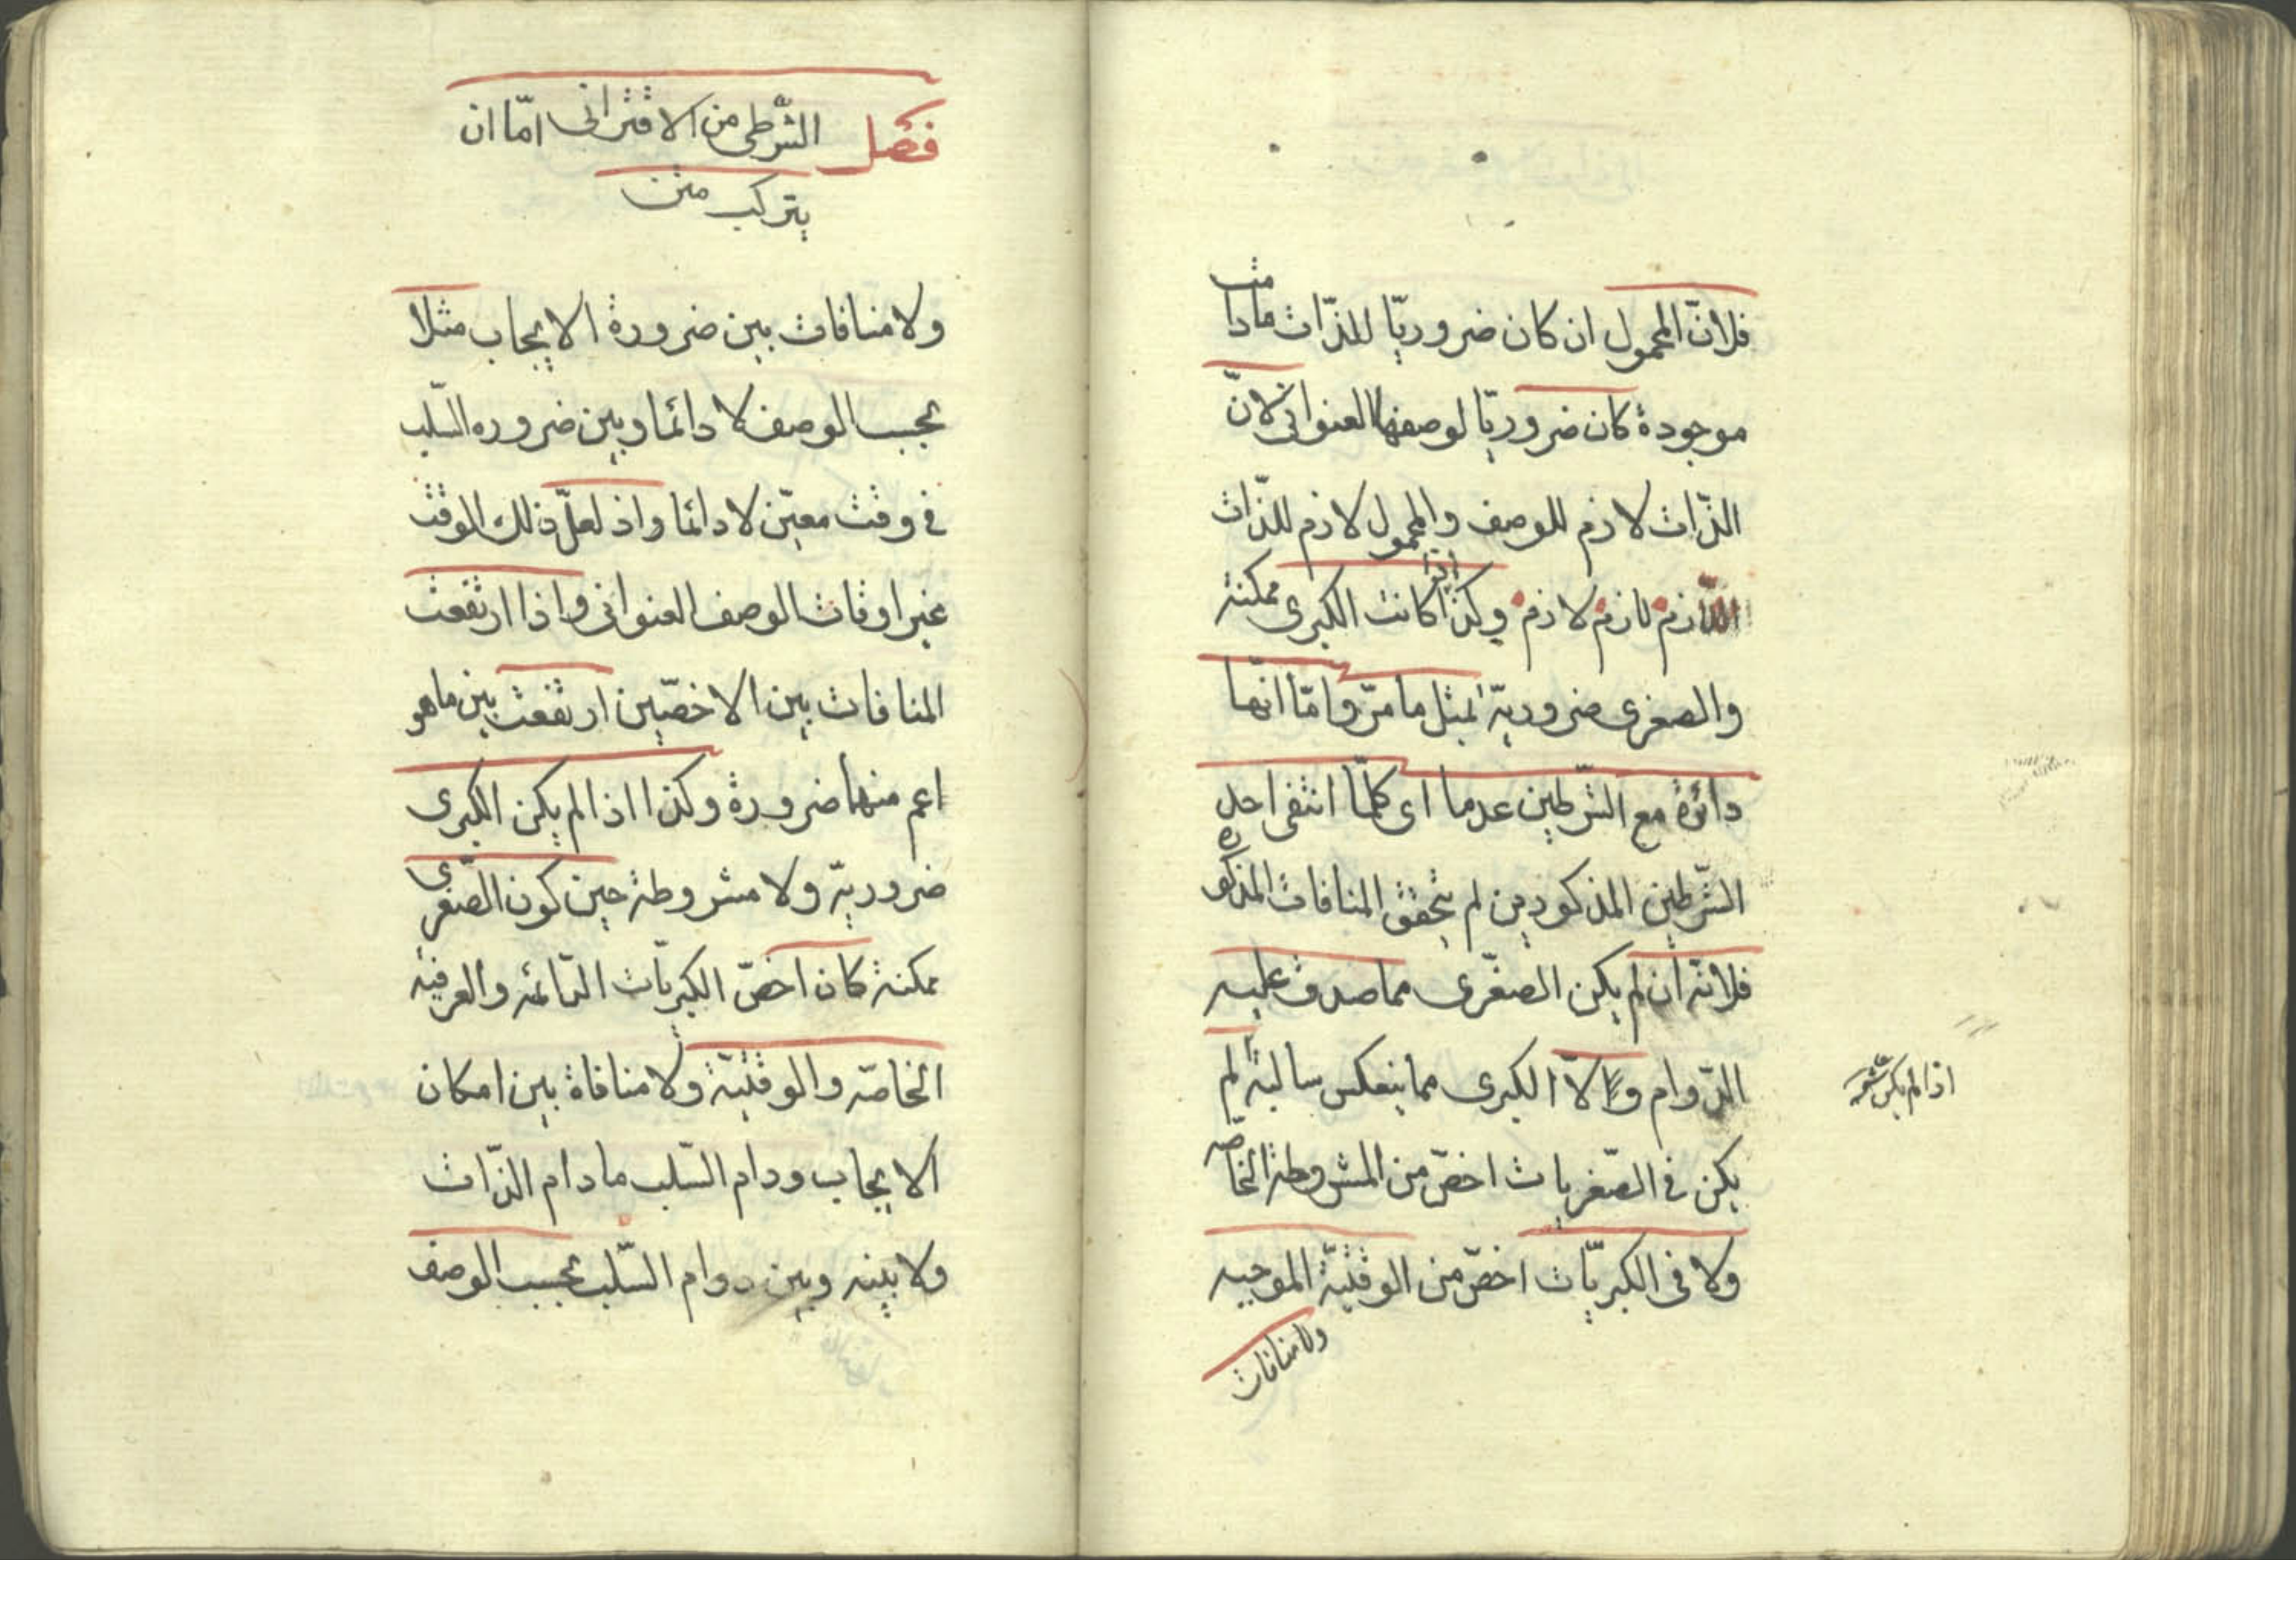 فلانّ المحمول ان كان ضروريّا للذّات مادامت
موجودة كان ضروريّا لوصفها العنوانى لانّ
الذّات لازم للوصف والمحمول لازم للذّات
اللازم لازم لازم وكذا اذا كانت الكبرى ممكنة
والصغرى ضروريّة لمثل ما مرّ وامّا انّها
دائرة مع الشّرطين عدما اى كلّما انتفى احد
الشّرطين المذكورين لم يتحقق المنافات المذكورة
فلانّه ان لم يكن الصّغرى مما صدق عليه
الدّوام ولا الكبرى مما ينعكس سالبة لم
يكن فى الصّغريات اخصّ من المشروطة الخاصّة
ولا فى الكبريّات اخصّ من الوقتيّة الموجبه
ولا منافات
اذا لم يكن
فصل الشّرطى من الاقترانى امّا ان
يتركب من
ولا منافات بين ضرورة الايجاب مثلا
بحسب الوصف لا دائما وبين ضروره السّلب
فى وقت معيّن لا دائما واذ لعلّ ذلك الوقت
غير اوقات الوصف العنوانى واذا ارتفعت
المنافات بين الاخصّين ارتفعت بين ما هو
اعم منهما ضرورة وكذا اذا لم يكن الكبرى
ضروريّة ولا مشروطة حين كون الصّغرى
ممكنة كان اخصّ الكبريّات الدّائمة والعرفيّة
الخاصّة والوقتيّة ولا منافاة بين امكان
الايجاب ودام السّلب مادام الذّات
ولا بينه وبين دوام السّلب بحسب الوصف